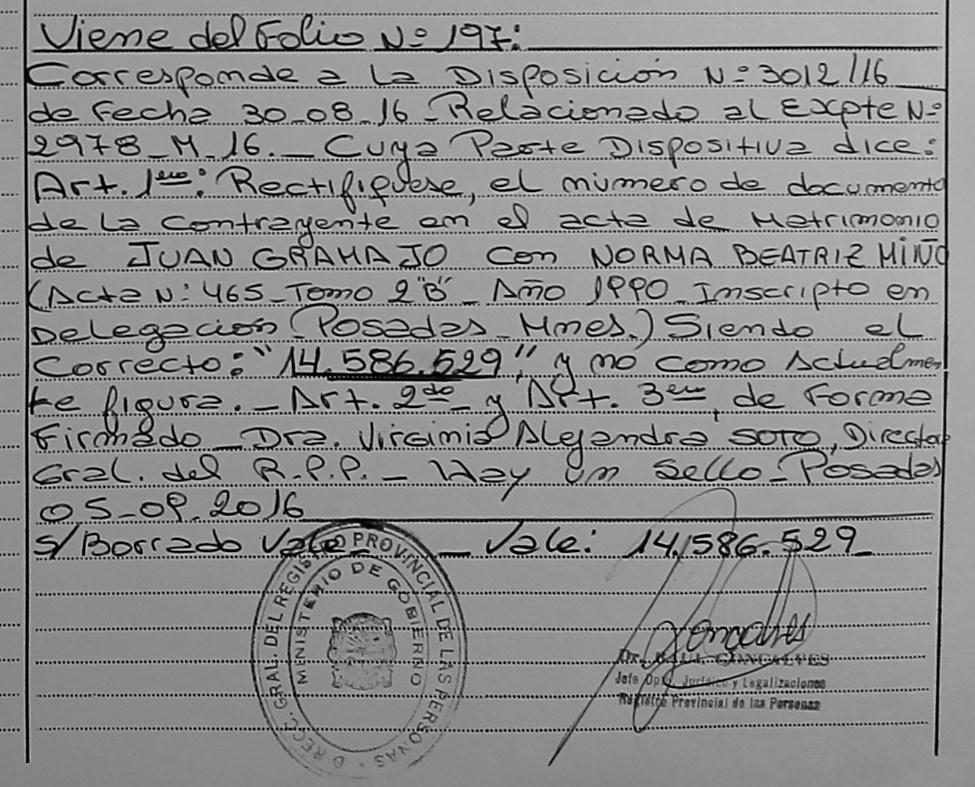 Viene del Folio Nº 197:
Corresponde a la Disposición Nº 3012/16
de Fecha 30-08-16 - Relacionado al Expte Nº
2978-M-16. - Cuya Parte Dispositiva dice:
Art. 1ero: Rectifíquese, el número de documento
de la contrayente en el acta de Matrimonio
de JUAN GRAMAJO con NORMA BEATRIZ MIÑO
(Acta Nº 465 - Tomo 2"B" - Año 1990 - Inscripto en
Delegación (Posadas - Mnes.) Siendo el
Correcto: "14.586.529", y no como Actualmen
te figura. - Art. 2do - y Art. 3ero, de Forma
Firmado - Dra. Virginia Alejandra SOTO, Director
Gral. del R.P.P. - Hay un Sello - Posadas
05-09-2016
s/Borrado Vale - Vale: 14.586.529
DIRECC. GRAL. DEL REGISTRO PROVINCIAL DE LAS PERSONAS
MINISTERIO DE GOBIERNO
Goncalves
Dr. RAUL GONCALVES
Jefe Dpto. Jurídico y Legalizaciones
Registro Provincial de las Personas